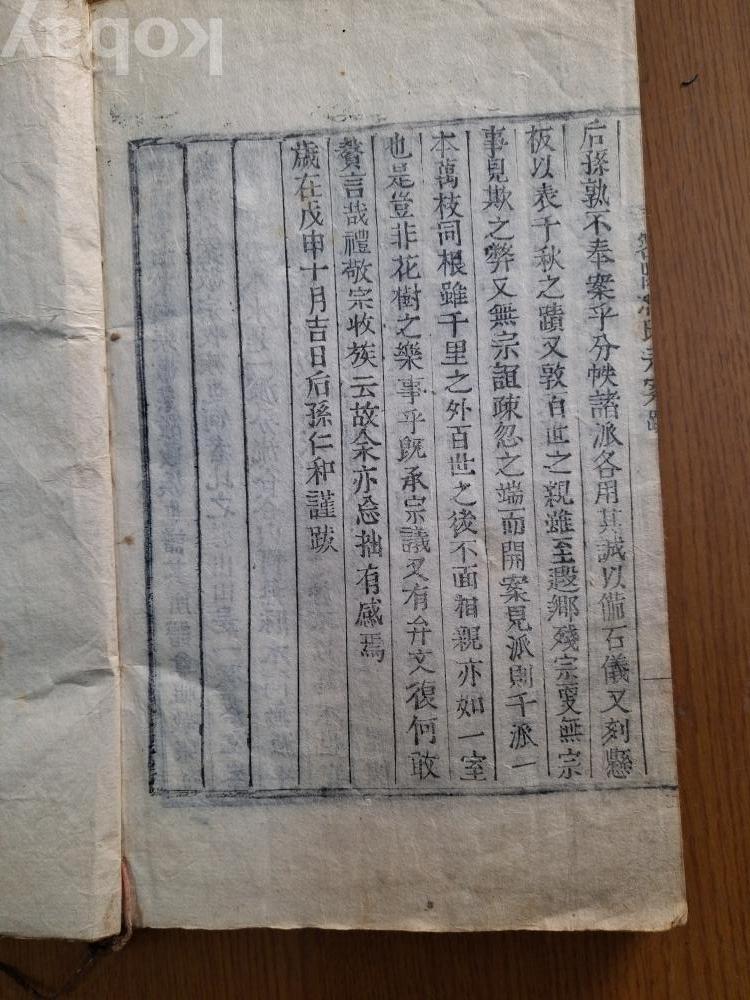 后孫孰不奉案乎分帙諸派各用其誠以備石儀又刻懸
板以表千秋之蹟又敦百世之親雖至遐鄉殘宗更無宗
事見欺之弊又無宗誼疎忽之端而開案見派則千派一
本萬枝同根雖千里之外百世之後不面相親亦如一室
也是豈非花樹之樂事乎旣承宗議又有弁文復何敢
贅言哉禮敬宗收族云故余亦忘拙有感焉
歲在戊申十月吉日后孫仁和謹跋
kobay